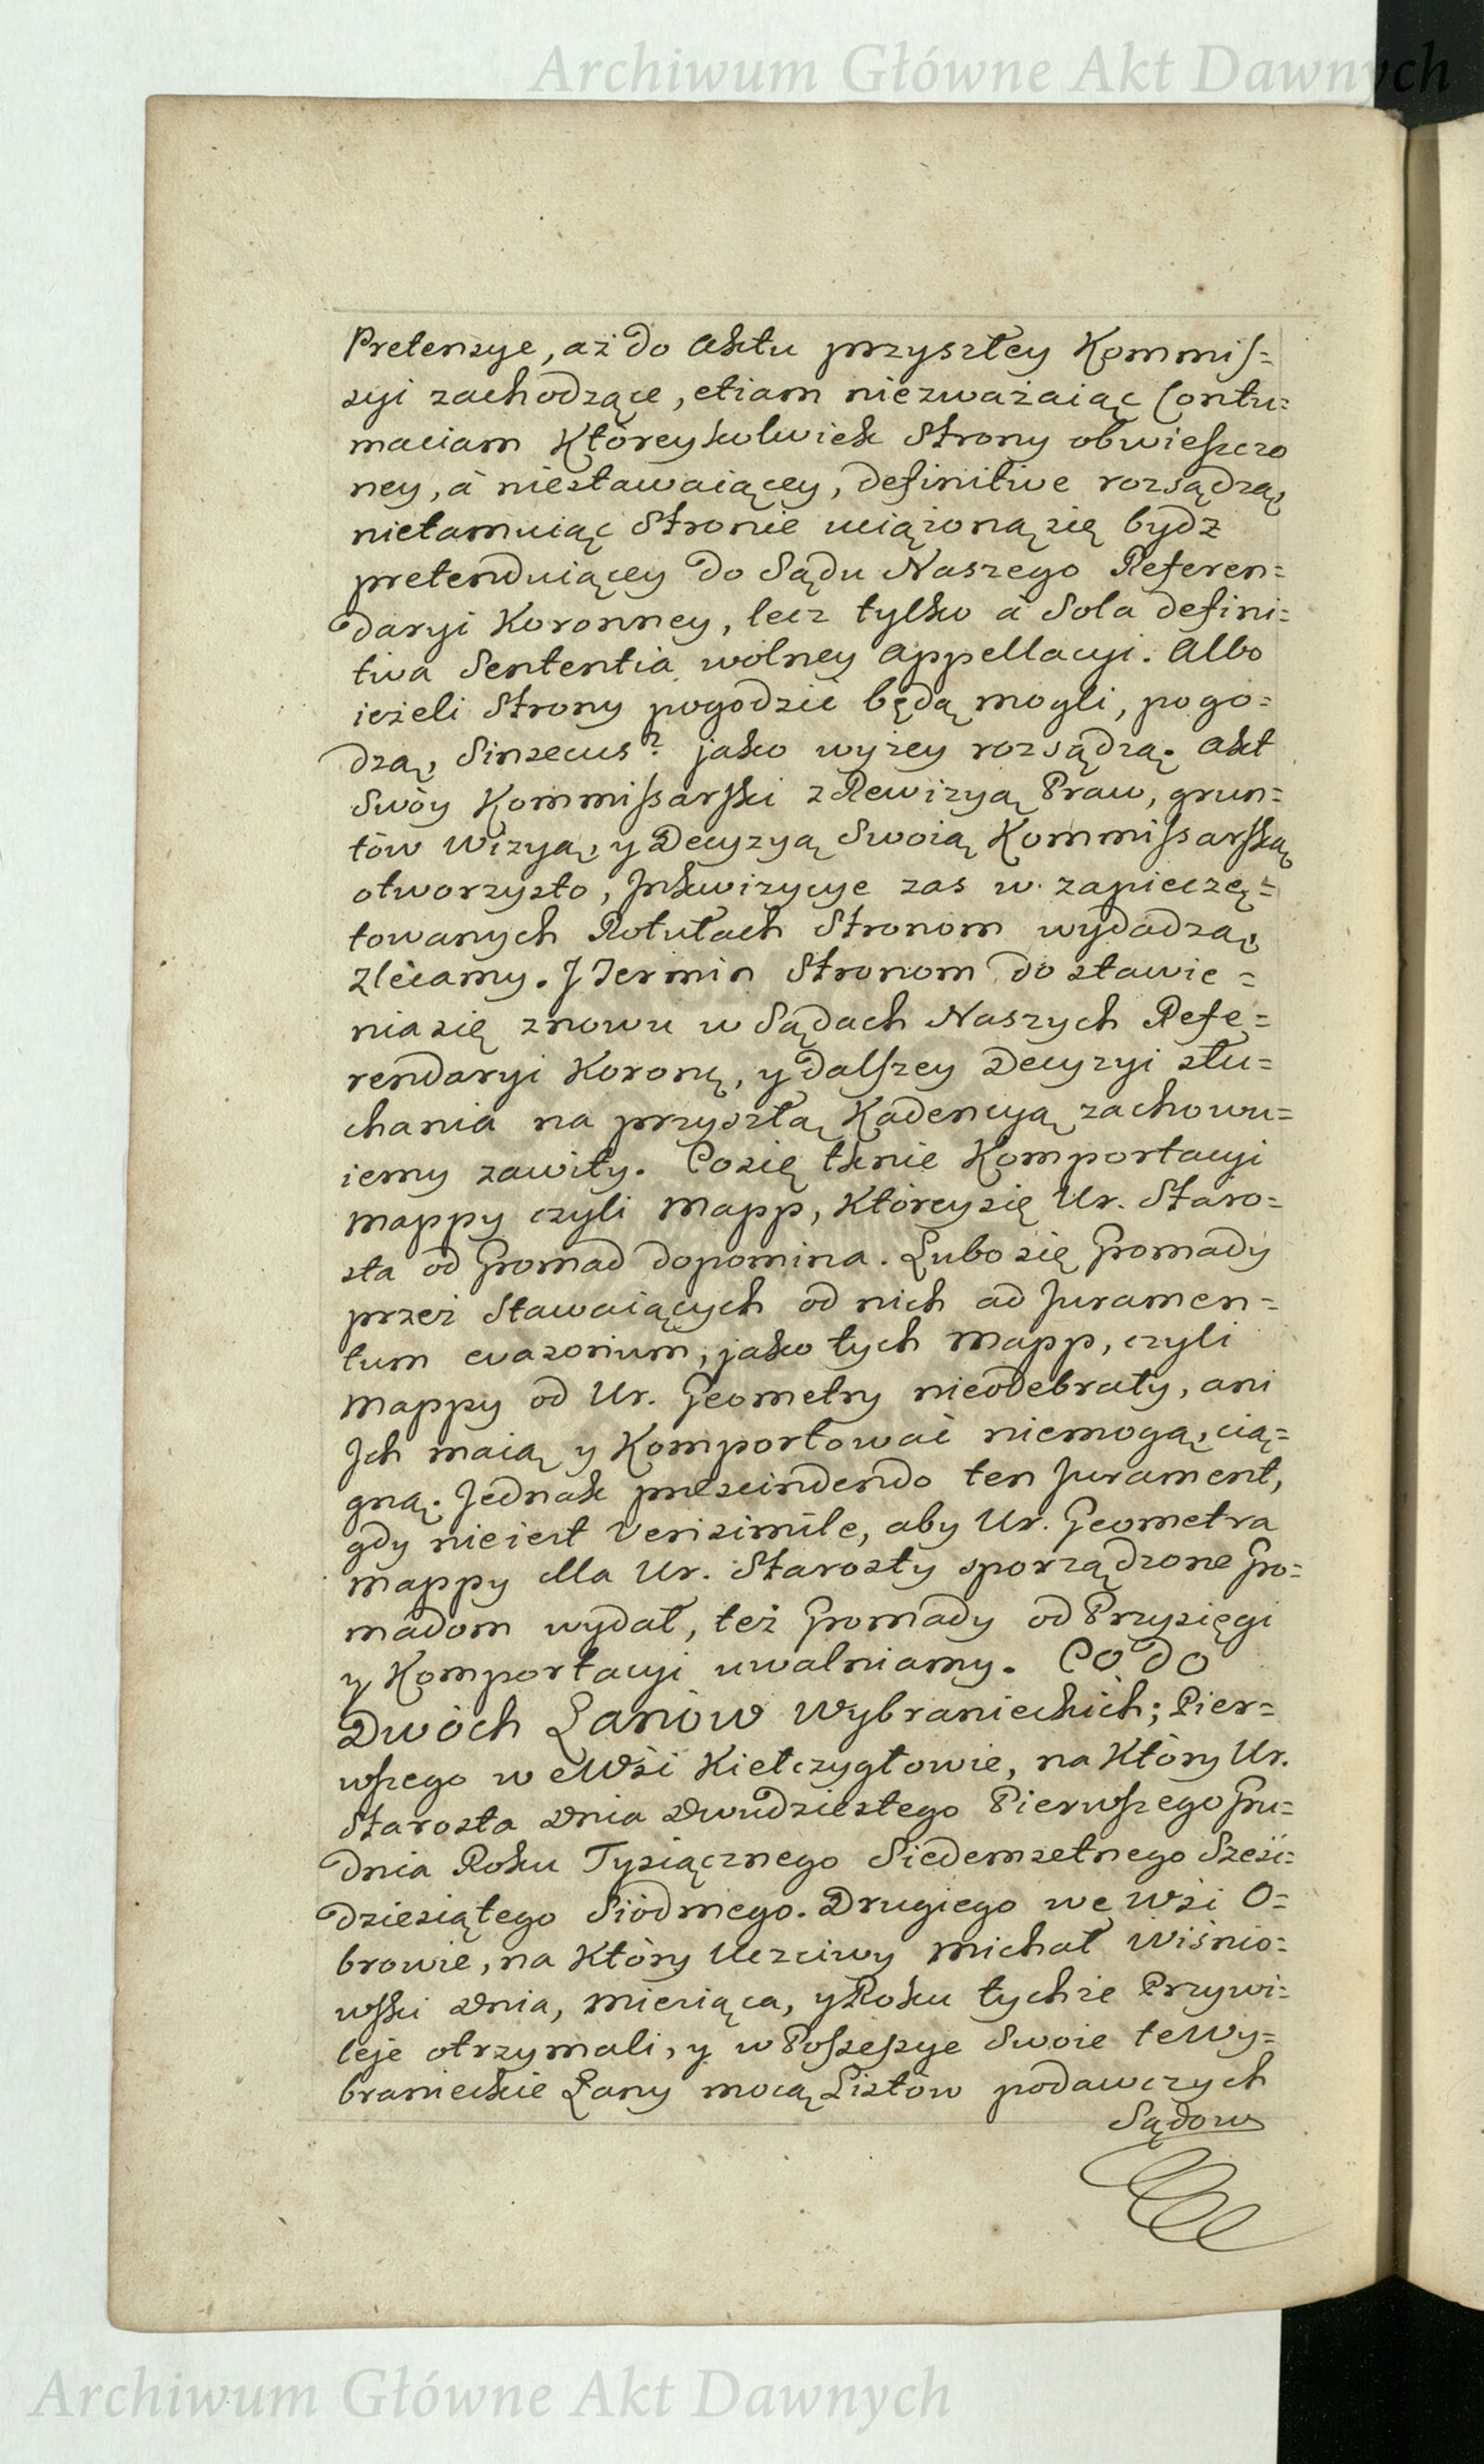 Archiwum Główne Akt Dawnych
Pretensye, aż do Aktu przyszłey Kommis=
syi zachodzące, etiam niezważaiąc Contu=
maciam Któreykolwiek Strony obwieszczo
ney, à niestawaiącey, definitive rozsądzą,
nietamuiąc Stronie uciążoną się bydź
pretenduiącey do Sądu Naszego Referen=
daryi Koronney, lecz tylko à Sola defini=
tiva Sententia wolney Appellacyi. Albo
ieżeli Strony pogodzić będą mogli, pogo=
dzą, Sinsecus? jako wyżey rozsądzą. Akt
Swóy Kommissarski z Rewizyą Praw, grun=
tów Wizyą, y Decyzyą Swoią Kommissarską
otworzysto, Inkwizycye zas w zapieczę=
towanych Rotułach Stronom wydadzą,
Zlecamy. I Termin Stronom do stawie=
nia się znowu w Sądach Naszych Refe=
rendaryi Koronę, y dalszey Decyzyi słu=
chania na przyszłą Kadencyą zachowu=
iemy zawity. Co się tknie Komportacyi
Mappy czyli Mapp, Którey się Ur. Staro=
sta od Gromad dopomina. Lubo się Gromady
przez Stawaiących od nich ad Juramen=
tum evasorium, jako tych Mapp, czyli
Mappy od Ur. Geometry nieodebrały, ani
Ich maią y Komportować niemogą, cią=
gną. Jednak prescindendo ten Jurament,
gdy nieiest Verisimile, aby Ur. Geometra
Mappy dla Ur. Starosty sporządzone Gro=
madom wydał, też Gromady od Przysięgi
y Komportacyi uwalniamy. Co do
Dwóch Łanów Wybranieckich; Pier=
wszego w eWsi Kiełczygłowie, na Który Ur.
Starosta Dnia Dwudziestego Pierwszego Gru=
dnia Roku Tysiącznego Siedemsetnego Sześć=
dziesiątego Siódmego. Drugiego we Wsi O=
browie, na Który Uczciwy Michał Wiśnio=
wski Dnia, Miesiąca, y Roku tychże Przywi=
leje otrzymali, y w Possessye Swoie te Wy=
branieckie Łany mocą Listów podawczych
Sądow
Archiwum Główne Akt Dawnych